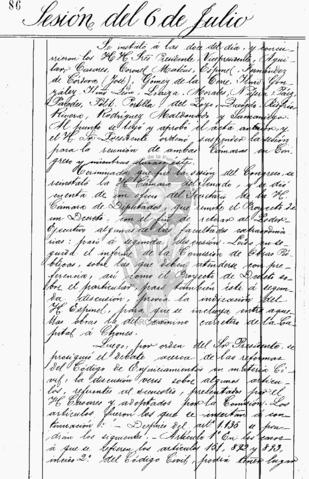 86
Sesión del 6 de Julio
Se instaló á las doce del día y concu-
rrieron los H.H. Srs. Presidente, Vicepresidente, Agui-
Casares, Coronel Matéus, Espinel, Fernández
de Córdova (José), Gómez de la Torre, Gon-
zález León, Lizarza, Morales, Páez,
Paredes, Polit, del Pozo, Quevedo,
Rivera, Rodríguez Maldonado y Samaniego.
Al punto se leyó y aprobó el acta anterior y
el H. Sr. Presidente ordenó suspender la sesión
para la reunión de ambas Cámaras en Con-
greso y mientras durase ésta.
Terminada que fué la sesión del Congreso, se
reinstaló la H. Cámara del Senado, y se dió
cuenta de un oficio del Secretario de la H.
Cámara de Diputados, que remite el Proyecto de
un Decreto con el fin de retirar al Poder
Ejecutivo algunas de las facultades extraordina-
rias: pasó á segunda discusión. Luego en se-
guida el informe de la Comisión de Obras Pú-
blicas sobre las que deben atenderse con pre-
ferencia, así como el Proyecto de Decreto so-
bre el particular, pasó también éste á segun-
da discusión, previa la indicación del
H. Espinel, para que se incluya entre aque-
llas obras la del camino carretero de la Ca-
pital á Chones.
Luego, por orden del Sr. Presidente, se
prosiguió el debate acerca de las reformas
del Código de Enjuiciamientos en materia Ci-
vil, la discusión versó sobre algunos artícu-
los, referentes al divorcio, presentados por el
H. Casares y adoptados por la Comisión. Los
artículos fueron los que se insertan á con-
tinuación: — Después del art. 1.135 se pon-
drán los siguientes. — Artículo 1º En los casos
á que se refieren los artículos 151, 822 y 823,
inciso 2º del Código Civil, podrá tener lugar